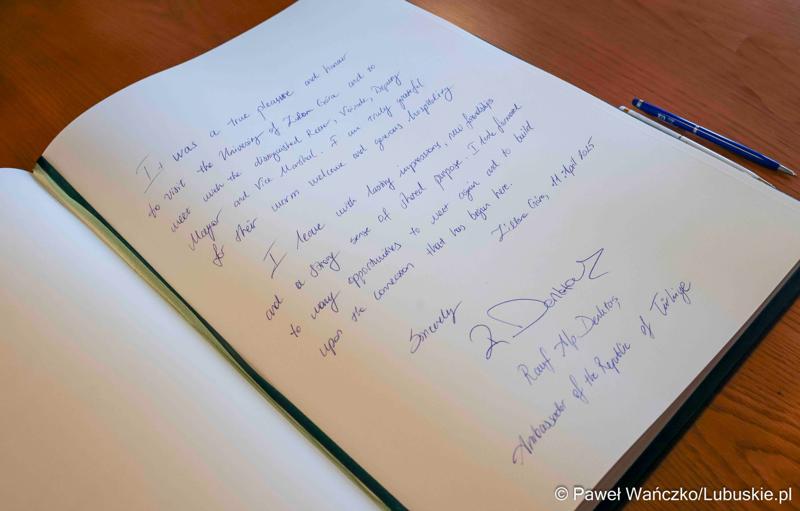 It was a true pleasure and honour
to visit the University of Zielona Góra and to
meet with the distinguished Rector, Voivode, Deputy
Mayor and Vice Marshal. I am truly grateful
for their warm welcome and generous hospitality.
I leave with lasting impressions, new friendships
and a strong sense of shared purpose. I look forward
to many opportunities to meet again and to build
upon the connection that has begun here.
Zielona Góra, 11 April 2025
Sincerely
R Denktaş
Rauf Alp Denktaş,
Ambassador of the Republic of Türkiye
© Paweł Wańczko/Lubuskie.pl